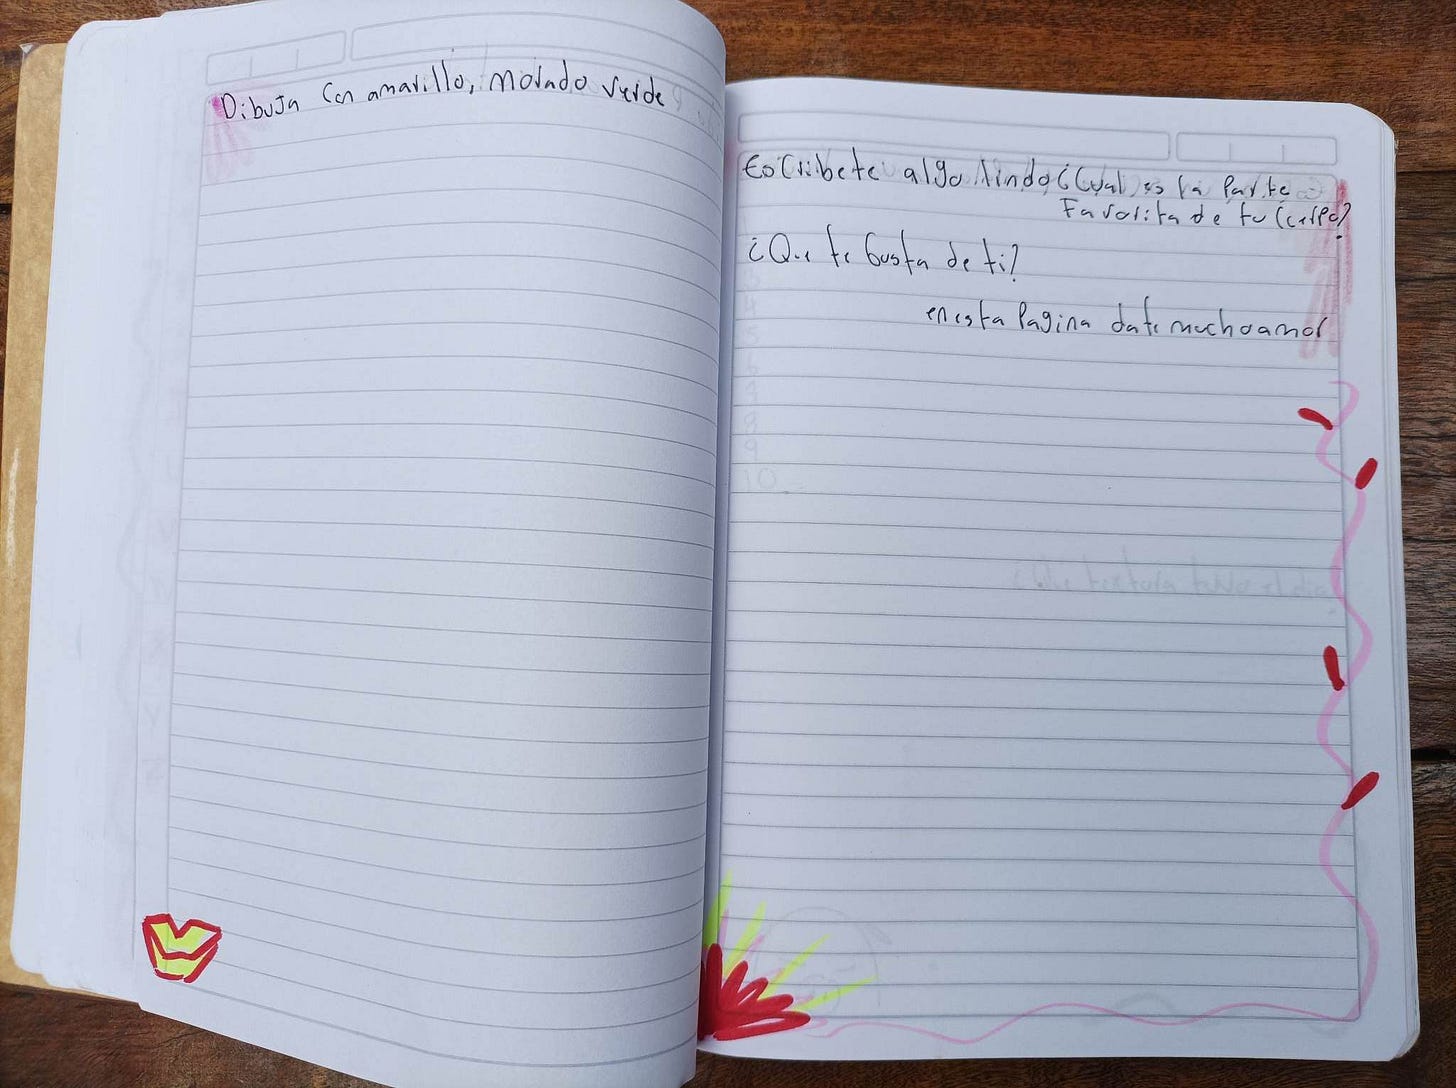 Dibuja con amarillo, morado verde
Escribete algo lindo ¿Cual es la parte
Favorita de tu cuerpo?
¿Que te Gusta de ti?
en esta Pagina date mucho amor
3
4
5
6
7
8
9
10